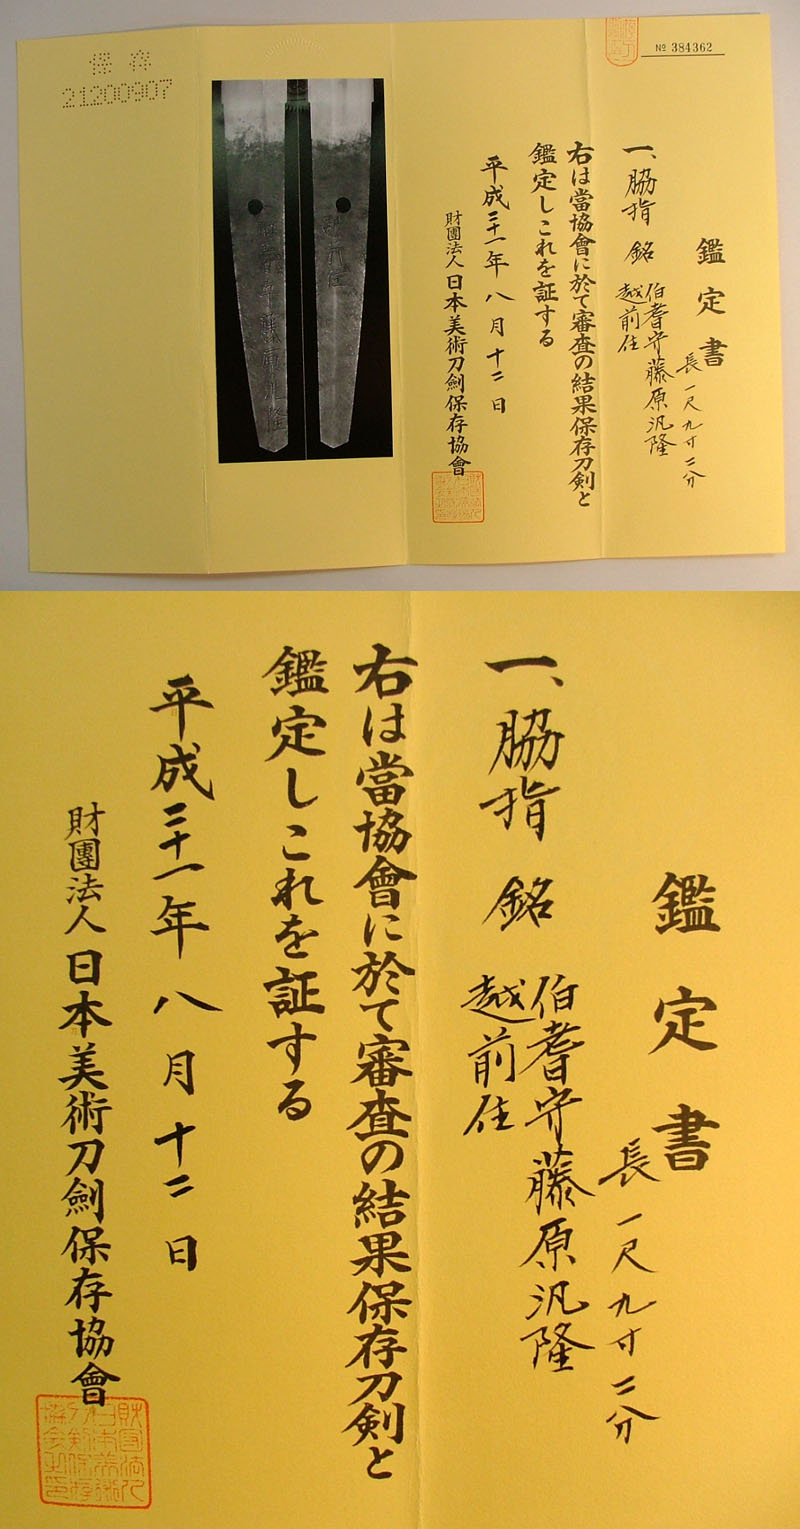 № 384362
鑑定書
長一尺九寸二分
一、脇指 銘 伯耆守藤原汎隆
越前住
右は當協會に於て審査の結果保存刀剣と
鑑定しこれを証する
平成二十一年八月十二日
財團法人日本美術刀劍保存協會
保存
21200907
鑑定書
長一尺九寸二分
一、脇指 銘 伯耆守藤原汎隆
越前住
右は當協會に於て審査の結果保存刀剣と
鑑定しこれを証する
平成二十一年八月十二日
財團法人日本美術刀劍保存協會